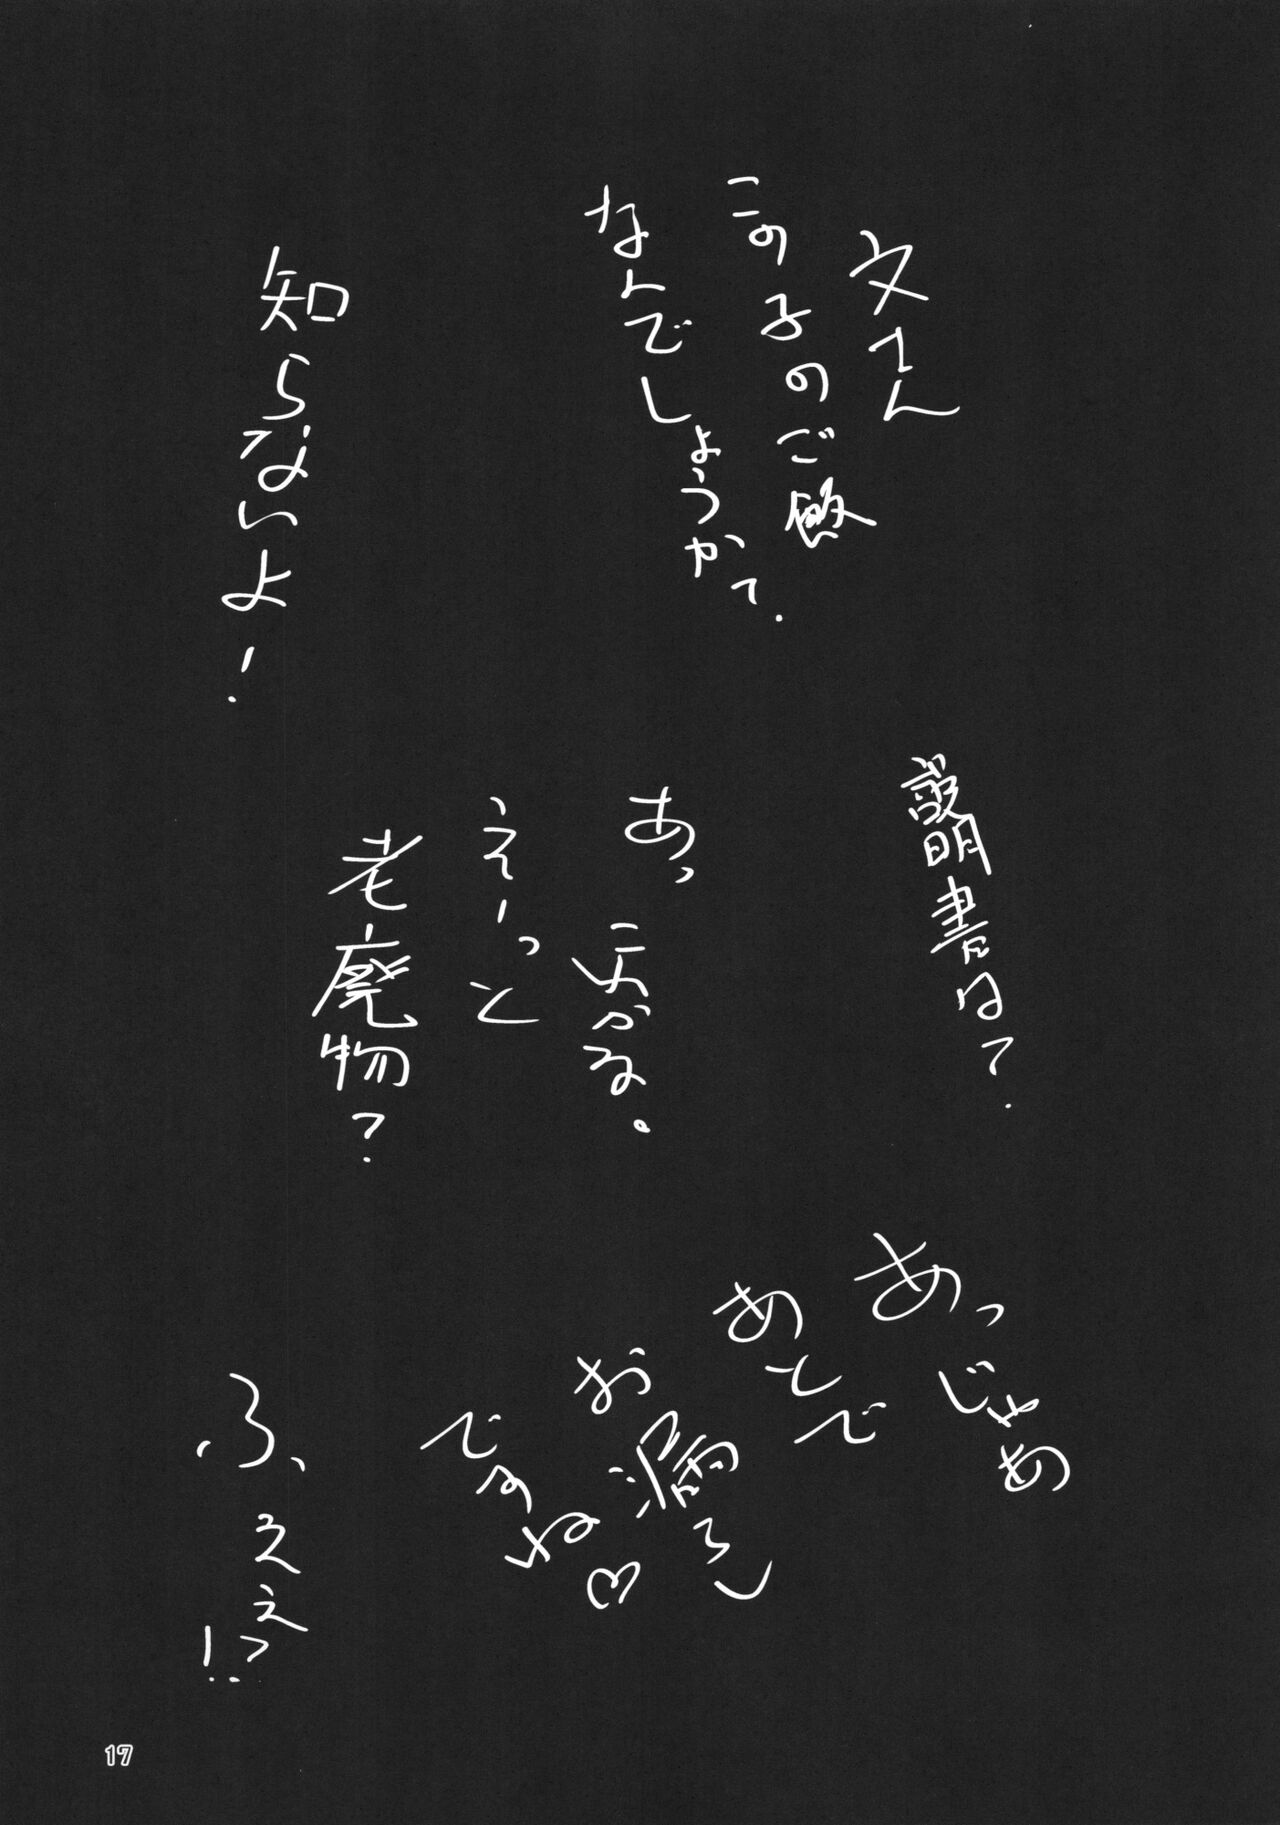 文さん
この子のご飯
なんでしょうかて.
知らないよ!
説明書はて.
あっ
えーっと
老廃物?
あっじゃあ
あとで
お漏らし
ですね♡
ふ、ええぇ!?
17